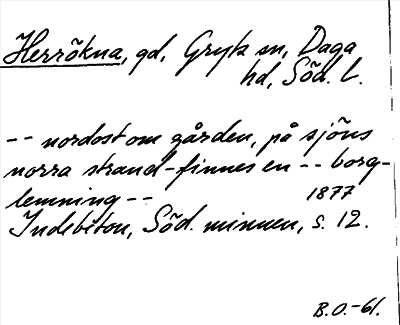 Herrökna, gd, Gryts sn, Daga
hd, Söd. l.
-- nordost om gården, på sjöns
norra strand - finnes en -- borg-
lemning --
1877
Indebitou, Söd. minnen, s. 12.
B.O.-61.